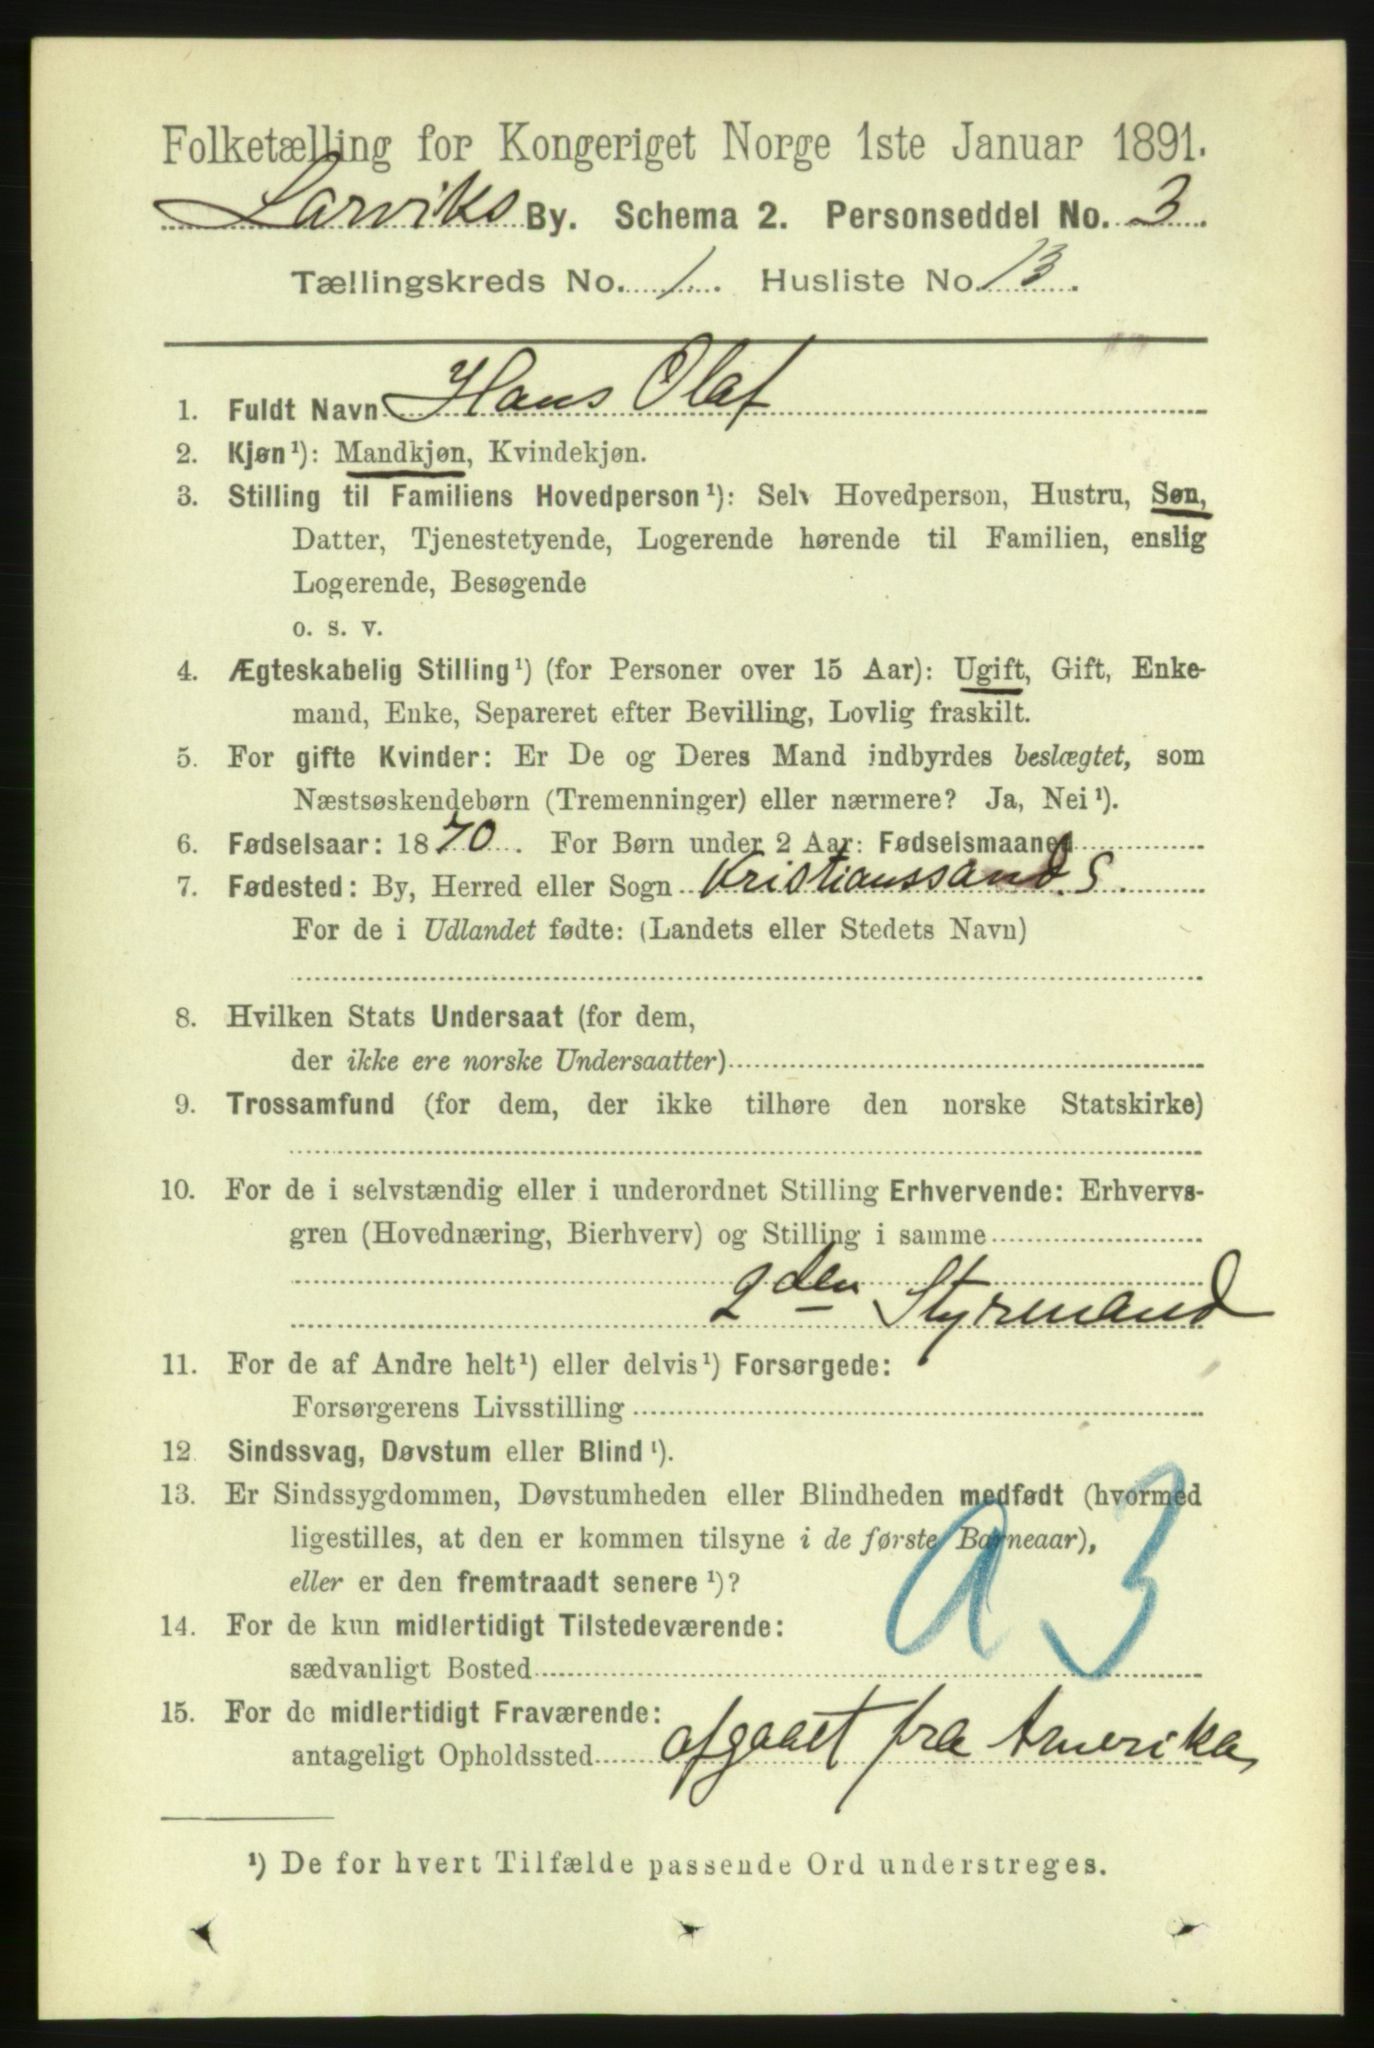 Folketælling for Kongeriget Norge 1ste Januar 1891.
Larviks By. Schema 2. Personseddel No. 3
Tællingskreds No. 1. Husliste No. 13.
1. Fuldt Navn Hans Olaf
2. Kjøn¹): Mandkjøn, Kvindekjøn.
3. Stilling til Familiens Hovedperson¹): Selv Hovedperson, Hustru, Søn,
Datter, Tjenestetyende, Logerende hørende til Familien, enslig
Logerende, Besøgende
o. s. v.
4. Ægteskabelig Stilling¹) (for Personer over 15 Aar): Ugift, Gift, Enke-
mand, Enke, Separeret efter Bevilling, Lovlig fraskilt.
5. For gifte Kvinder: Er De og Deres Mand indbyrdes beslægtet, som
Næstsøskendebørn (Tremenninger) eller nærmere? Ja, Nei¹).
6. Fødselsaar: 1870. For Børn under 2 Aar: Fødselsmaaned
7. Fødested: By, Herred eller Sogn Kristianssand. S.
For de i Udlandet fødte: (Landets eller Stedets Navn)
8. Hvilken Stats Undersaat (for dem,
der ikke ere norske Undersaatter)
9. Trossamfund (for dem, der ikke tilhøre den norske Statskirke)
10. For de i selvstændig eller i underordnet Stilling Erhvervende: Erhvervs-
gren (Hovednæring, Bierhverv) og Stilling i samme
2den Styrmand
11. For de af Andre helt¹) eller delvis¹) Forsørgede:
Forsørgerens Livsstilling
12 Sindssvag, Døvstum eller Blind¹).
13. Er Sindssygdommen, Døvstumheden eller Blindheden medfødt (hvormed
ligestilles, at den er kommen tilsyne i de første Barneaar),
eller er den fremtraadt senere¹)?
a 3
14. For de kun midlertidigt Tilstedeværende:
sædvanligt Bosted
15. For de midlertidigt Fraværende:
antageligt Opholdssted afgaaet fra Amerika
¹) De for hvert Tilfælde passende Ord understreges.